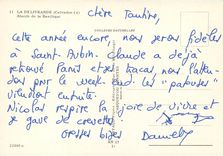 11 LA DELIVRANDE (Calvados)
Abords de la Basilique
Chère Tantine,
Cette année encore, nous serons fidèles
à Saint-Aubin. Claude a déjà
retrouvé Paris et ses tracas, nous l'atten-
dons pour le week-end. Les "patures"
viendront ensuite.
Nicolas respire la joie de vivre et
se gave de crevettes
Grosses bises